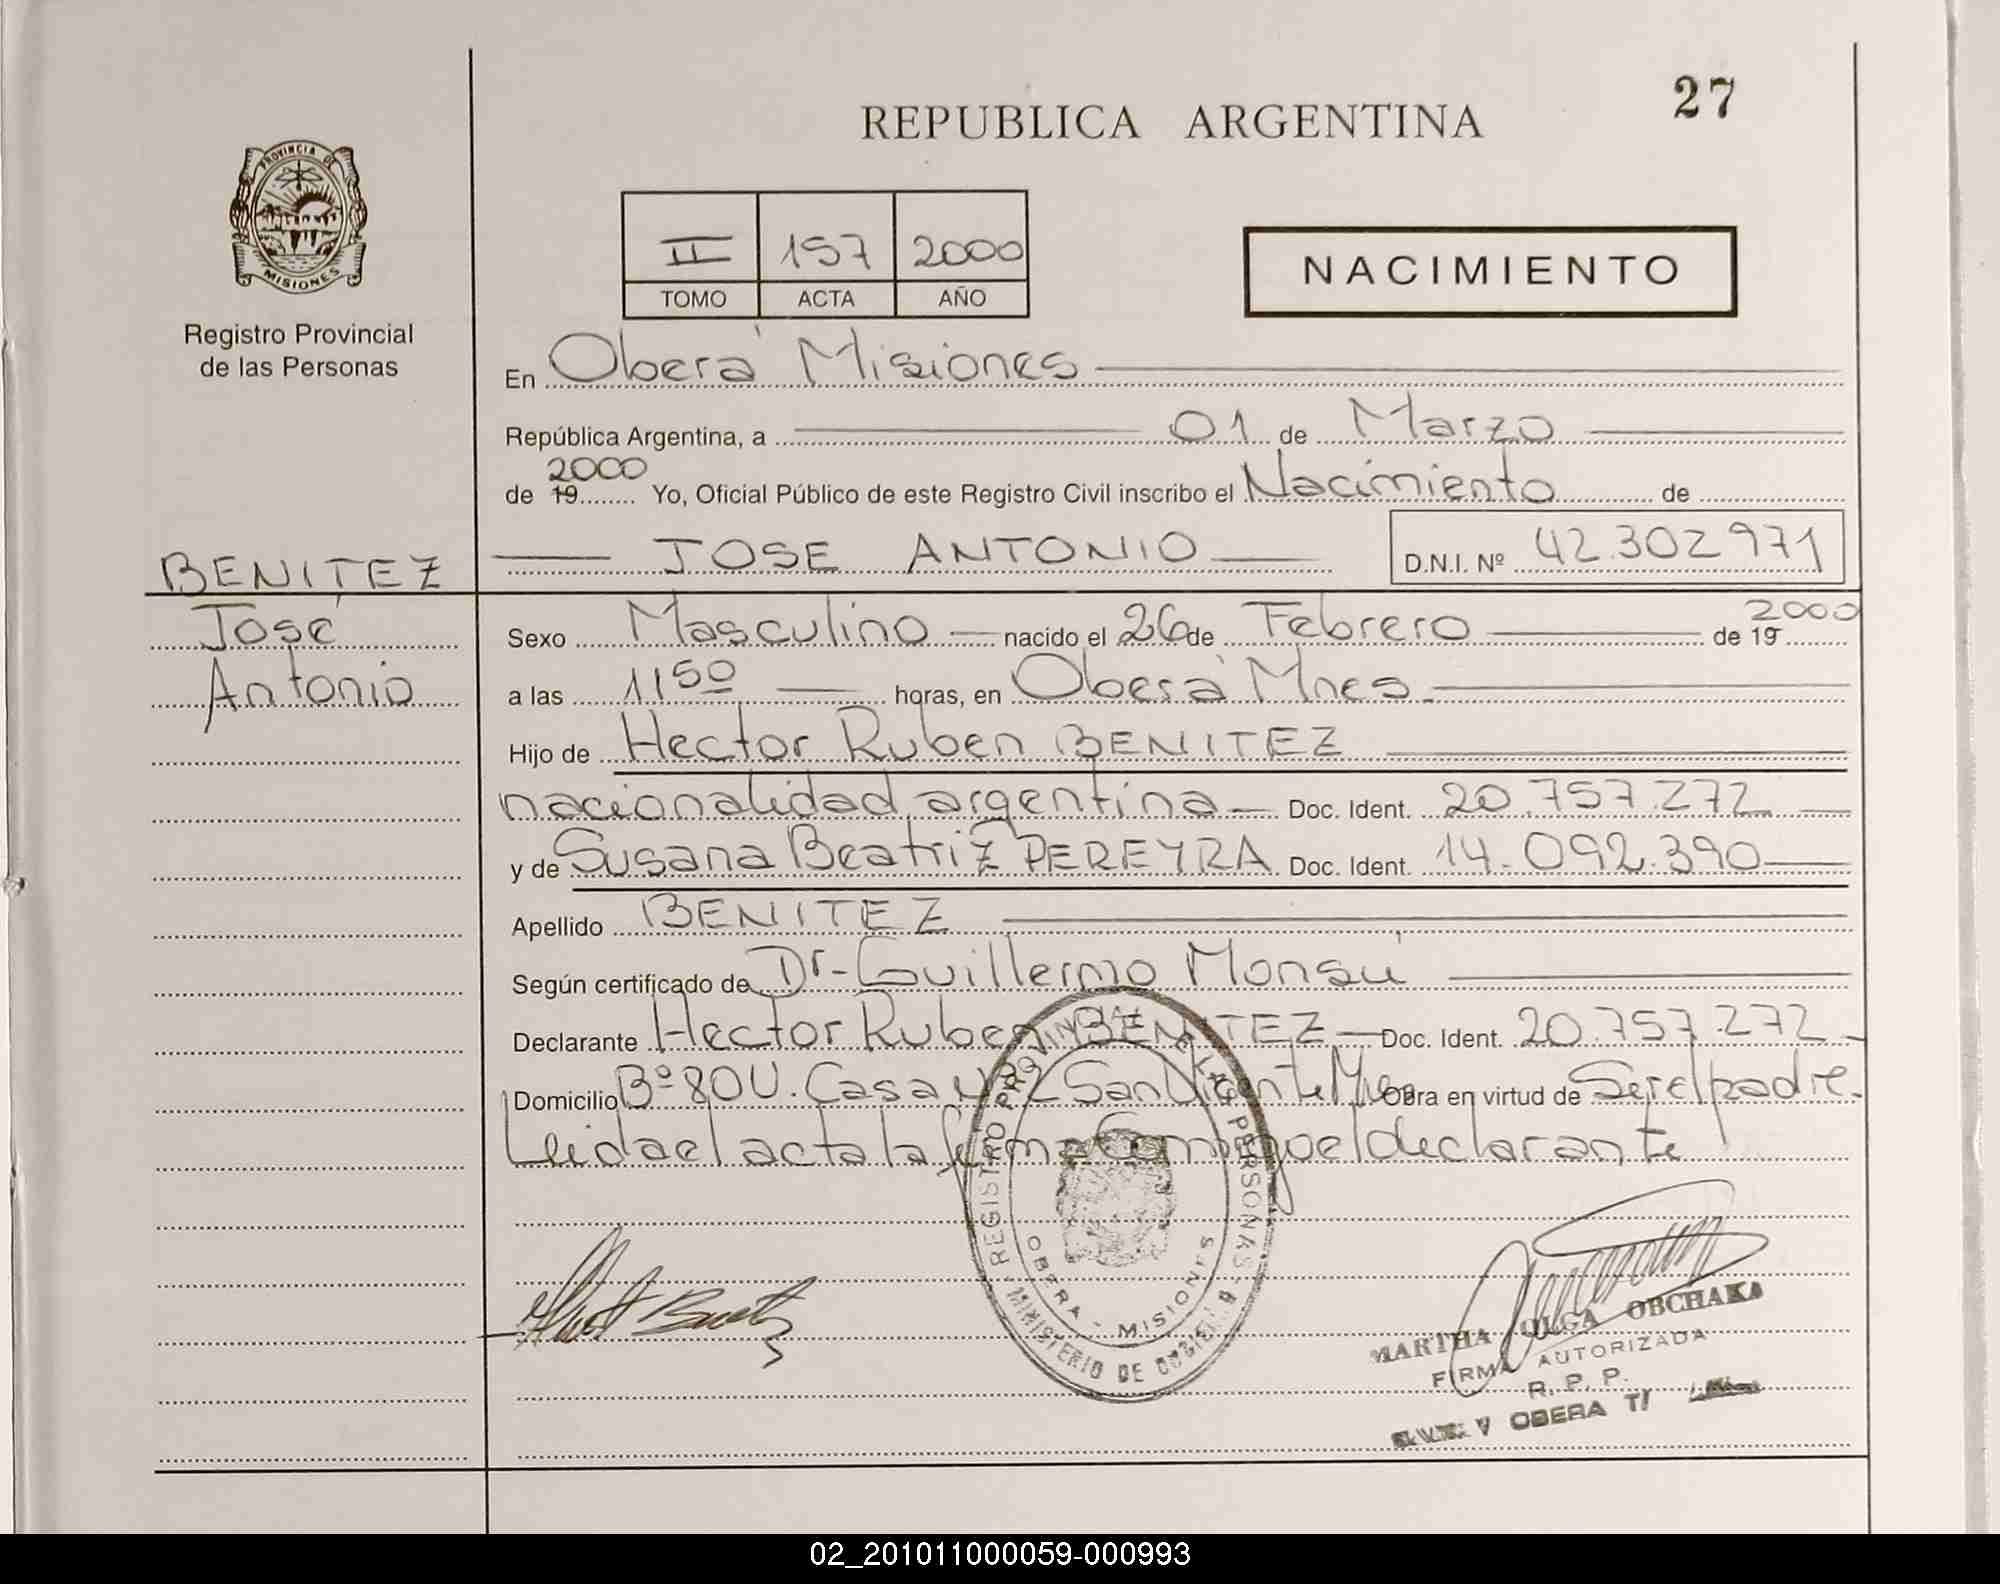 27
REPUBLICA ARGENTINA
PROVINCIA DE
MISIONES
Registro Provincial
de las Personas
II 157 2000
TOMO ACTA AÑO
NACIMIENTO
En Oberá Misiones
República Argentina, a 01 de Marzo
de 19 2000 Yo, Oficial Público de este Registro Civil inscribo el Nacimiento de
JOSE ANTONIO D.N.I. Nº 42.302.971
BENITEZ
José
Antonio
Sexo Masculino nacido el 26 de Febrero de 19 2000
a las 11 50 horas, en Oberá Mnes.
Hijo de Hector Ruben BENITEZ
nacionalidad argentina Doc. Ident. 20.757.272
y de Susana Beatriz PEREYRA Doc. Ident. 14.092.390
Apellido BENITEZ
Según certificado de Dr. Guillermo Monsú
Declarante Hector Ruben BENITEZ Doc. Ident. 20.757.272
Domicilio Bº 80 U. Casa San Vicente Obra en virtud de Ser el padre.
Leida el acta la firma Conmigo el declarante
REGISTRO PROVINCIAL DE LAS PERSONAS
OBERA - MISIONES
MINISTERIO DE GOBIERNO
MARTHA OLGA OBCHAKA
FIRMA AUTORIZADA
R. P. P.
OBERA
02_201011000059-000993